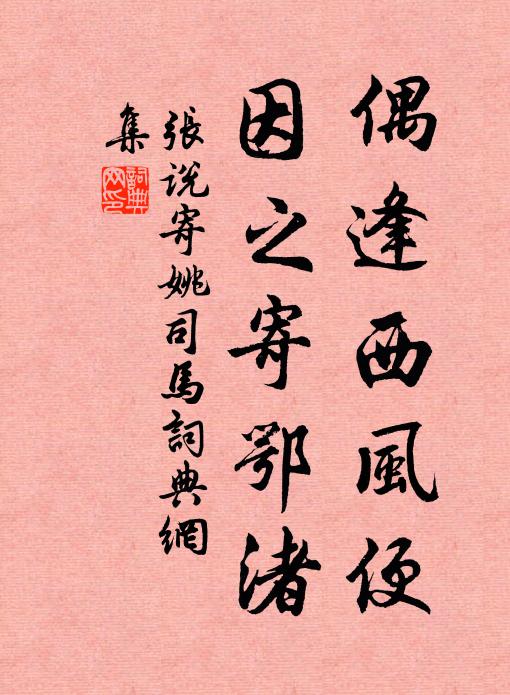 偶逢西風便
因之寄鄂渚
張说寄姚司馬詞典網
集
詞典
网印